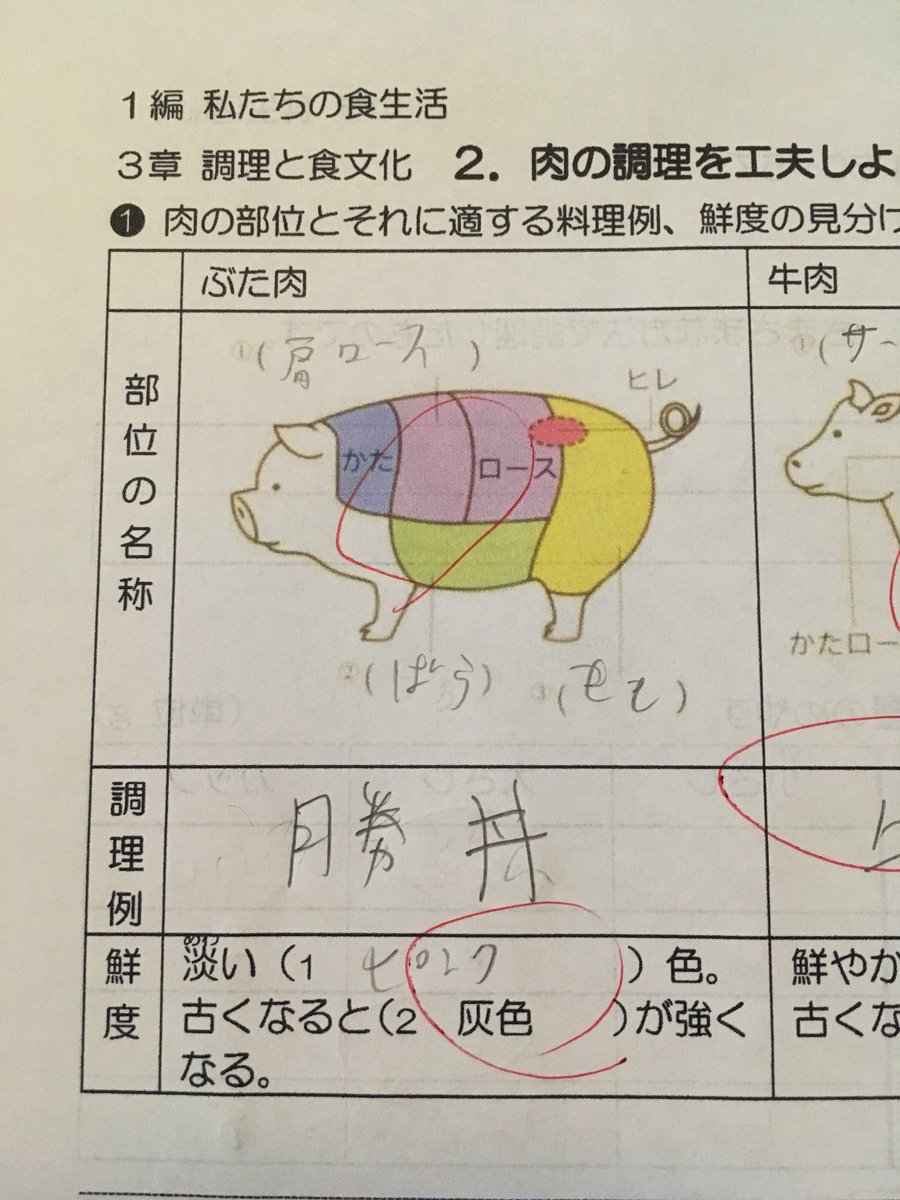 1編 私たちの食生活
3章 調理と食文化 2. 肉の調理を工夫しよ
❶ 肉の部位とそれに適する料理例、鮮度の見分け
ぶた肉
牛肉
部位の名称
①(肩ロース)
ヒレ
かた
ロース
②(ばら)
③(もも)
①(サー
かたロー
調理例
勝丼
鮮度
淡い(1 ピンク )色。
あわ
古くなると(2 灰色 )が強く
なる。
鮮やか
古くな